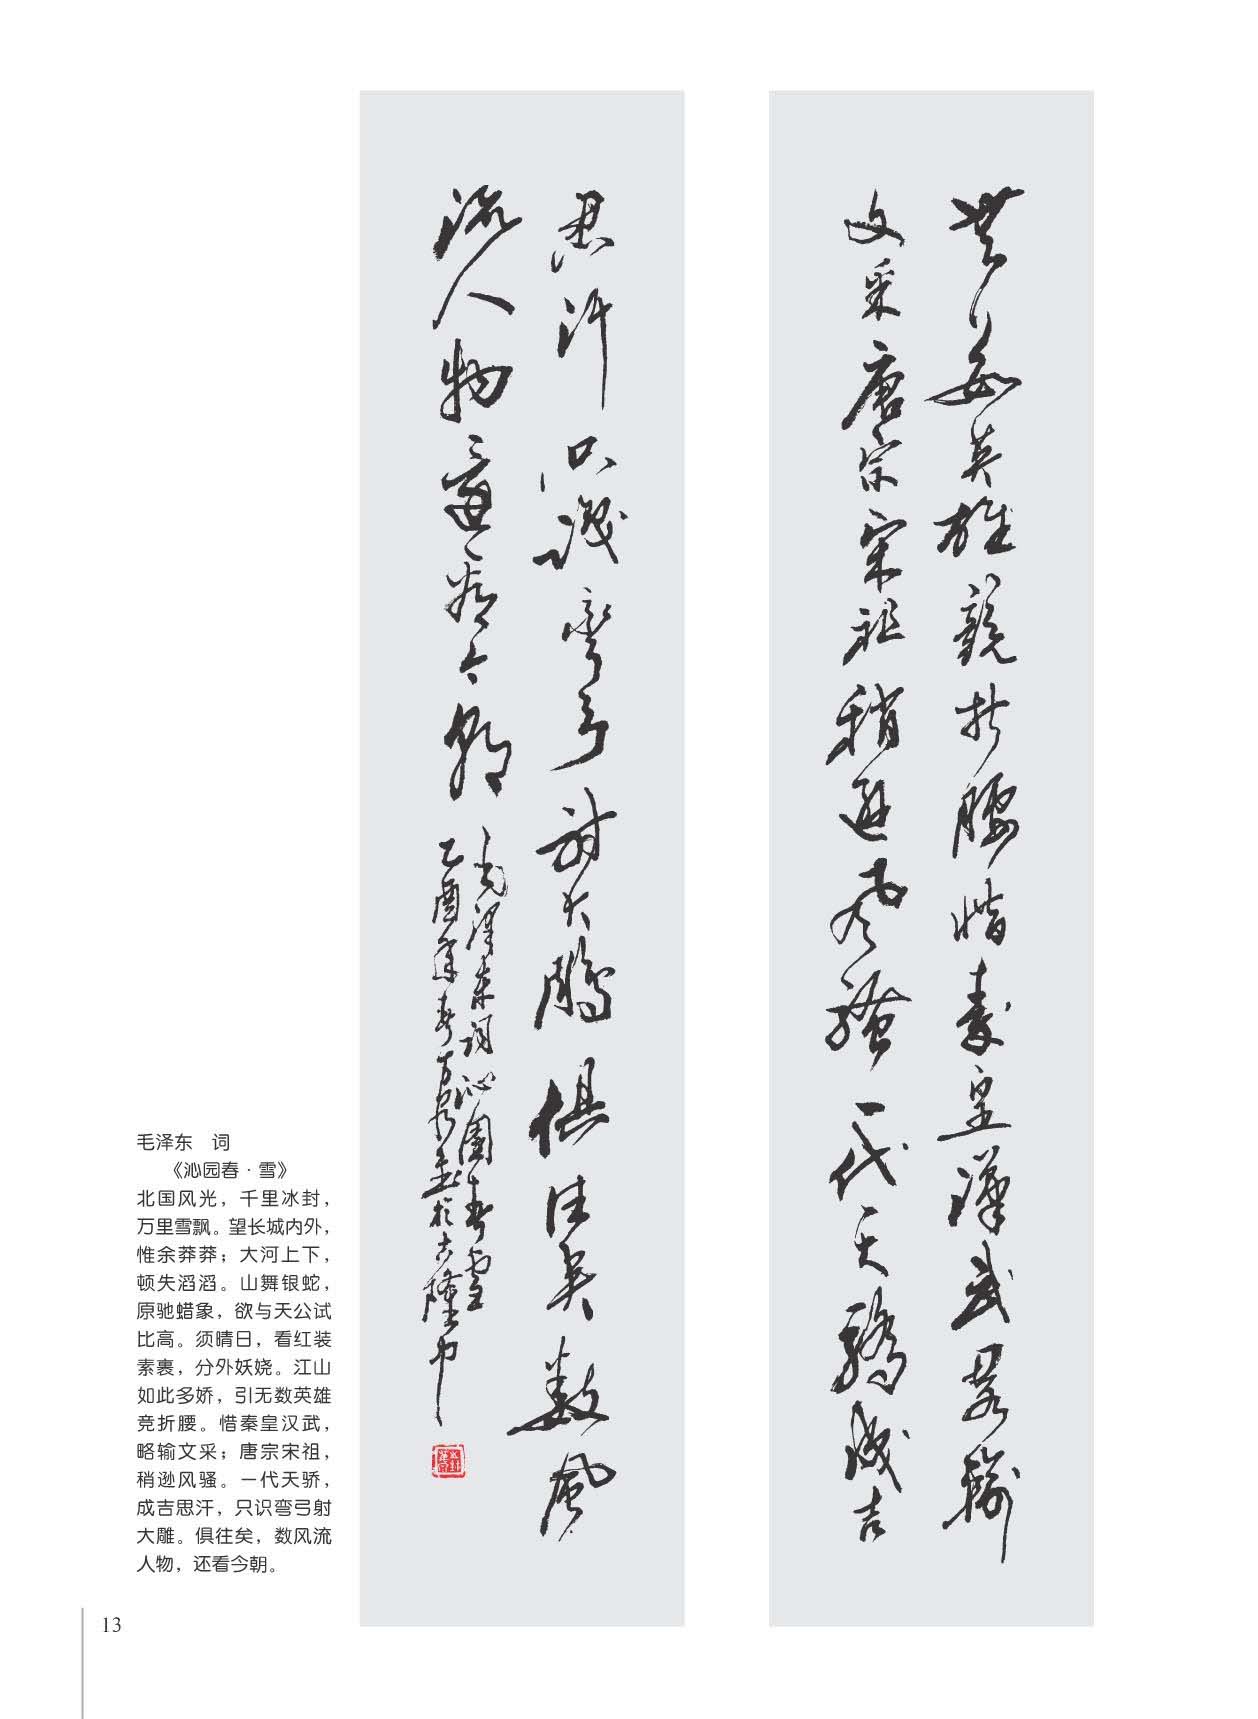 無數英雄競折腰惜秦皇漢武略輸
文采唐宗宋祖稍遜風騷一代天驕成吉
思汗只識彎弓射大鵰俱往矣數風
流人物還看今朝
毛澤東詞沁園春雪
乙酉年春於古隆中
毛泽东　词
《沁园春·雪》
北国风光，千里冰封，
万里雪飘。望长城内外，
惟余莽莽；大河上下，
顿失滔滔。山舞银蛇，
原驰蜡象，欲与天公试
比高。须晴日，看红装
素裹，分外妖娆。江山
如此多娇，引无数英雄
竞折腰。惜秦皇汉武，
略输文采；唐宗宋祖，
稍逊风骚。一代天骄，
成吉思汗，只识弯弓射
大雕。俱往矣，数风流
人物，还看今朝。
13